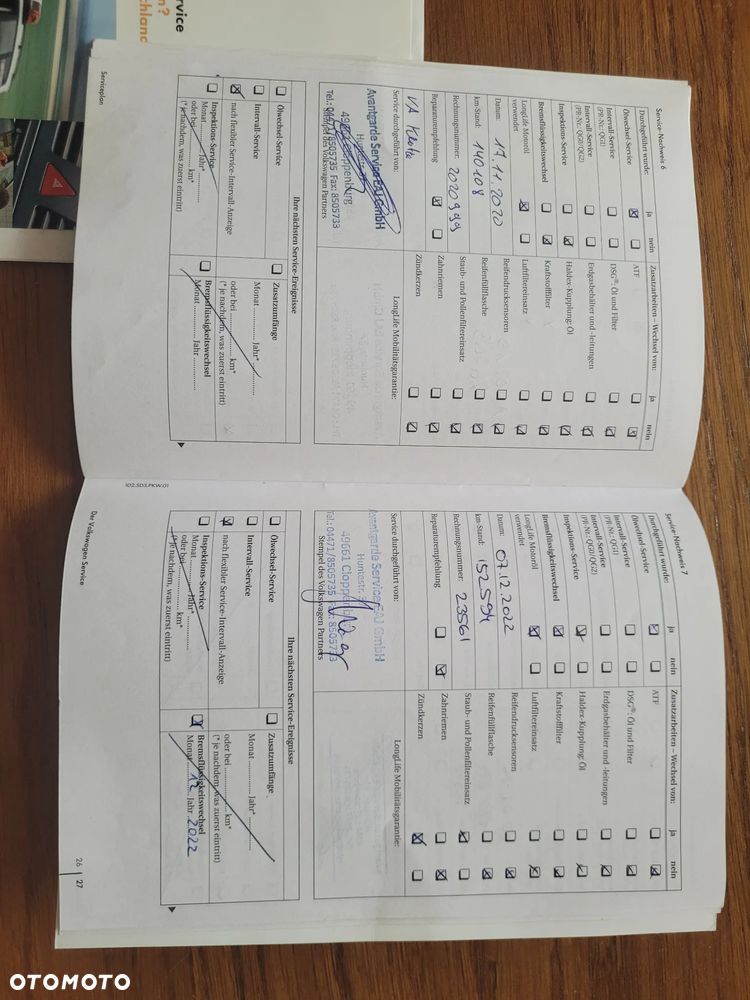 rvice
n?
chland
Serviceplan
Service-Nachweis 6
Durchgeführt wurde:
ja
nein
Ölwechsel-Service
Intervall-Service
(PR-Nr.: QG1)
Intervall-Service
(PR-Nr.: QG0/QG2)
Inspektions-Service
Bremsflüssigkeitswechsel
LongLife Motoröl
verwendet
Datum: 17.11.2020
km-Stand: 140108
Rechnungsnummer: 2020999
Reparaturempfehlung
VA Klötze
Service durchgeführt von:
Avantgarde Service EAJ GmbH
Cloppenburg
Tel.: 04471/8505735 Fax: 8505733
Stempel des Volkswagen Partners
Zusatzarbeiten – Wechsel von:
ja
nein
ATF
DSG®: Öl und Filter
Erdgasbehälter und -leitungen
Haldex-Kupplung: Öl
Kraftstofffilter
Luftfiltereinsatz
Reifendrucksensoren
Reifenfüllflasche
Staub- und Pollenfiltereinsatz
Zahnriemen
Zündkerzen
LongLife Mobilitätsgarantie:
Ihre nächsten Service-Ereignisse
Ölwechsel-Service
Intervall-Service
nach flexibler Service-Intervall-Anzeige
Inspektions-Service
Monat ............ Jahr* ............
oder bei ............ km*
(* je nachdem, was zuerst eintritt)
Zusatzumfänge
Monat ............ Jahr* ............
oder bei ............ km*
(* je nachdem, was zuerst eintritt)
Bremsflüssigkeitswechsel
Monat ............ Jahr ............
102.5D3.PKW.01
Der Volkswagen Service
Service-Nachweis 7
Durchgeführt wurde:
ja
nein
Ölwechsel-Service
Intervall-Service
(PR-Nr.: QG1)
Intervall-Service
(PR-Nr.: QG0/QG2)
Inspektions-Service
Bremsflüssigkeitswechsel
LongLife Motoröl
verwendet
Datum: 07.12.2022
km-Stand: 152594
Rechnungsnummer: 23561
Reparaturempfehlung
Service durchgeführt von:
Avantgarde Service EAJ GmbH
49661 Cloppenburg
Tel.: 04471/8505735 Fax: 8505733
Stempel des Volkswagen Partners
Zusatzarbeiten – Wechsel von:
ja
nein
ATF
DSG®: Öl und Filter
Erdgasbehälter und -leitungen
Haldex-Kupplung: Öl
Kraftstofffilter
Luftfiltereinsatz
Reifendrucksensoren
Reifenfüllflasche
Staub- und Pollenfiltereinsatz
Zahnriemen
Zündkerzen
LongLife Mobilitätsgarantie:
Ihre nächsten Service-Ereignisse
Ölwechsel-Service
Intervall-Service
nach flexibler Service-Intervall-Anzeige
Inspektions-Service
Monat ............ Jahr* ............
oder bei ............ km*
(* je nachdem, was zuerst eintritt)
Zusatzumfänge
Monat ............ Jahr* ............
oder bei ............ km*
(* je nachdem, was zuerst eintritt)
Bremsflüssigkeitswechsel
Monat 12 Jahr 2022
26 | 27
OTOMOTO